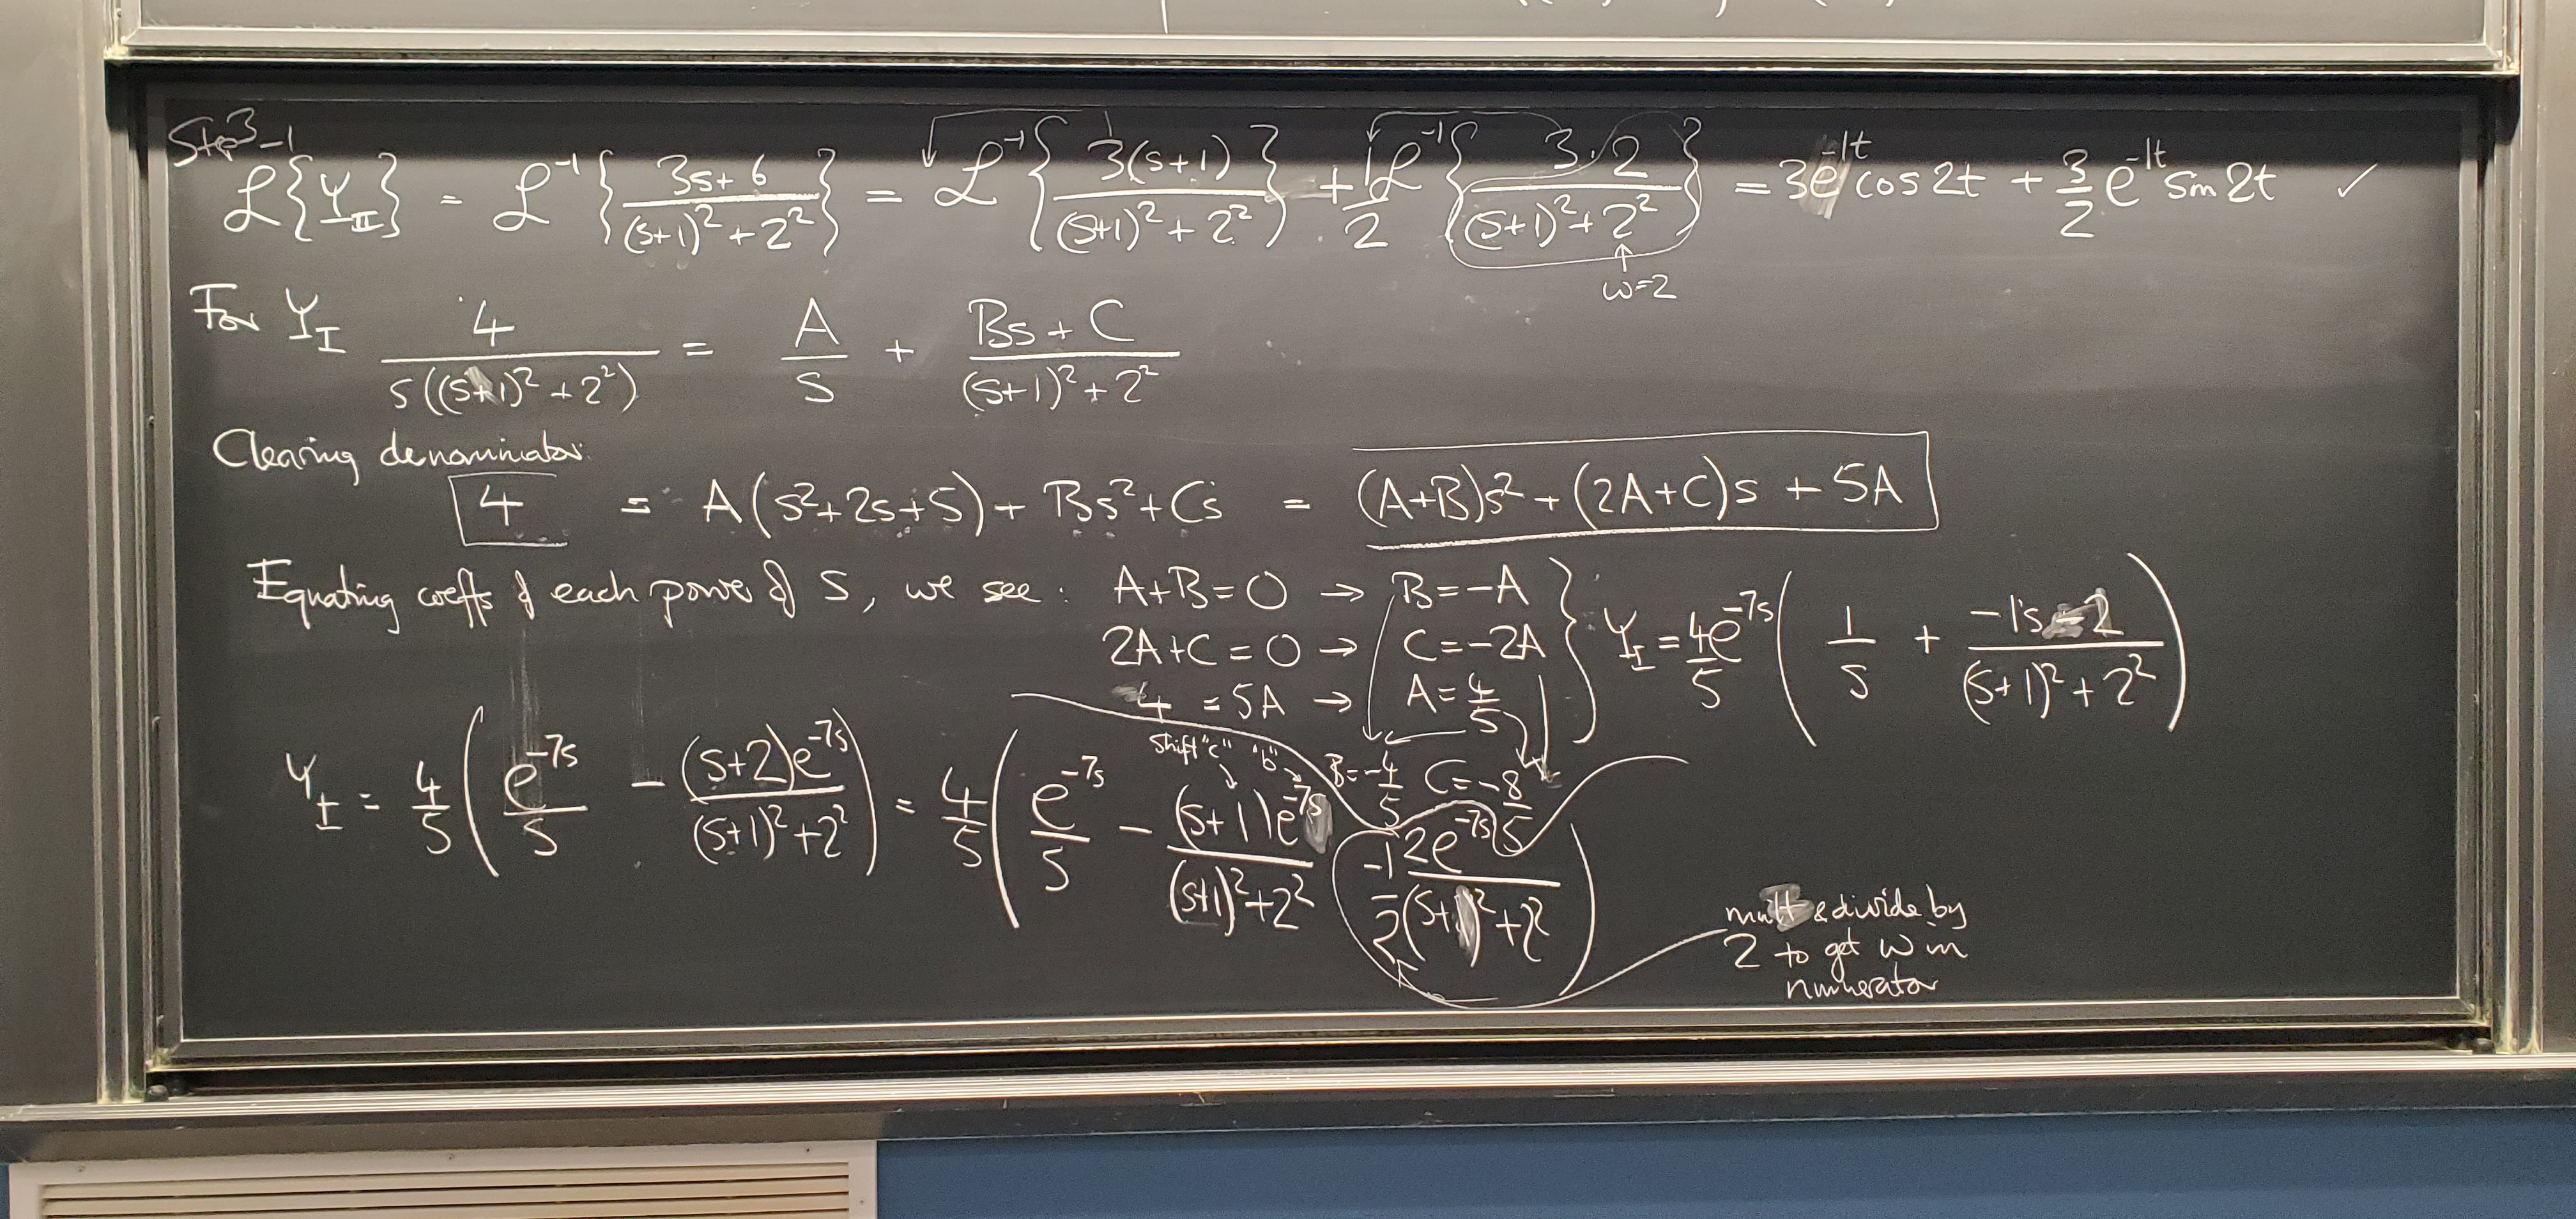 Step 3
ℒ⁻¹{Y_II} = ℒ⁻¹{(3s+6)/((s+1)²+2²)} = ℒ⁻¹{3(s+1)/((s+1)²+2²)} + 1/2 ℒ⁻¹{3·2/((s+1)²+2²)} = 3e^(-1t) cos 2t + 3/2 e^(-1t) sin 2t ✓
ω=2
For Y_I 4/(s((s+1)²+2²)) = A/s + (Bs+C)/((s+1)²+2²)
Clearing denominator:
4 = A(s²+2s+5) + Bs²+Cs = (A+B)s² + (2A+C)s + 5A
Equating coeffs of each power of s, we see: A+B=0 → B=-A
2A+C=0 → C=-2A
4 = 5A → A=4/5
B=-4/5 C=-8/5
Y_I = 4/5 e^(-7s) (1/s + (-1s-2)/((s+1)²+2²))
shift "c" "b"
Y_I = 4/5 (e^(-7s)/s - (s+2)e^(-7s)/((s+1)²+2²)) = 4/5 (e^(-7s)/s - (s+1)e^(-7s)/((s+1)²+2²) - 1/2 2e^(-7s)/((s+1)²+2²))
mult & divide by
2 to get ω in
numerator